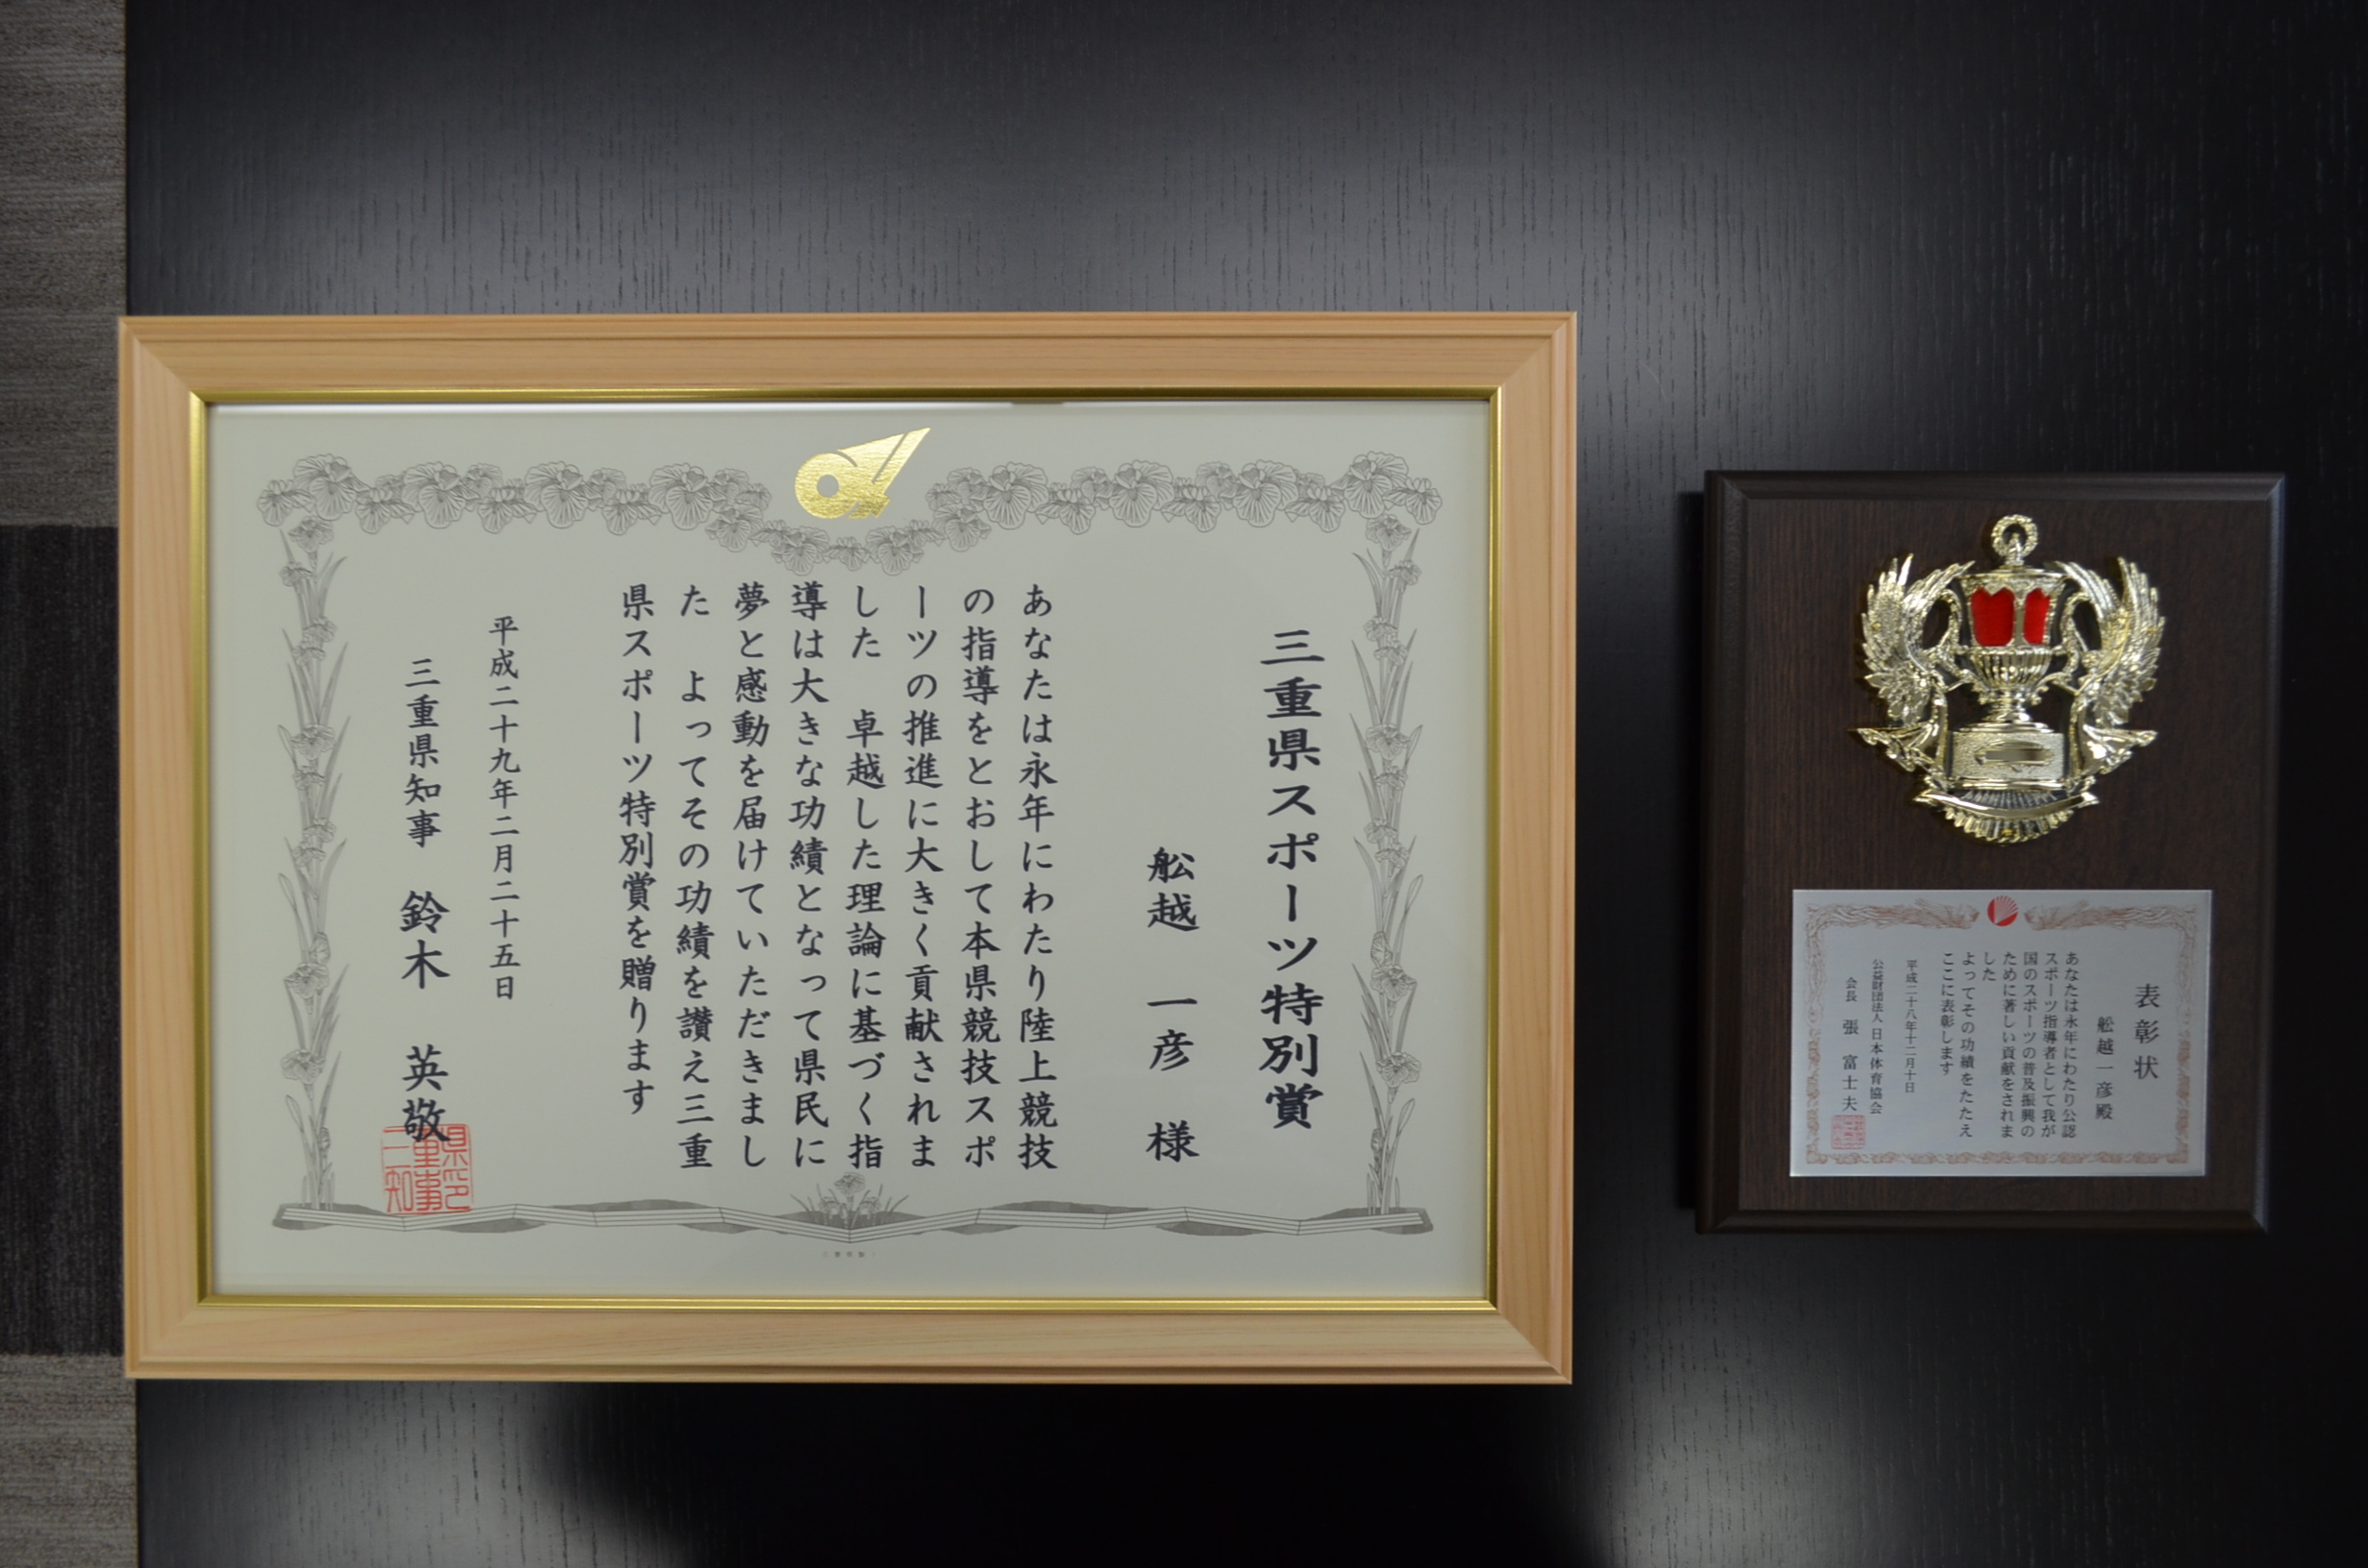 三重県スポーツ特別賞
舩越 一彦 様
あなたは永年にわたり陸上競技
の指導をとおして本県競技スポ
ーツの推進に大きく貢献されま
した 卓越した理論に基づく指
導は大きな功績となって県民に
夢と感動を届けていただきまし
た よってその功績を讃え三重
県スポーツ特別賞を贈ります
平成二十九年二月二十五日
三重県知事 鈴木 英敬
表彰状
舩越一彦殿
あなたは永年にわたり公認
スポーツ指導者として我が
国のスポーツの普及振興の
ために著しい貢献をされま
した
よってその功績をたたえ
ここに表彰します
平成二十八年十二月十日
公益財団法人 日本体育協会
会長 張 富士夫